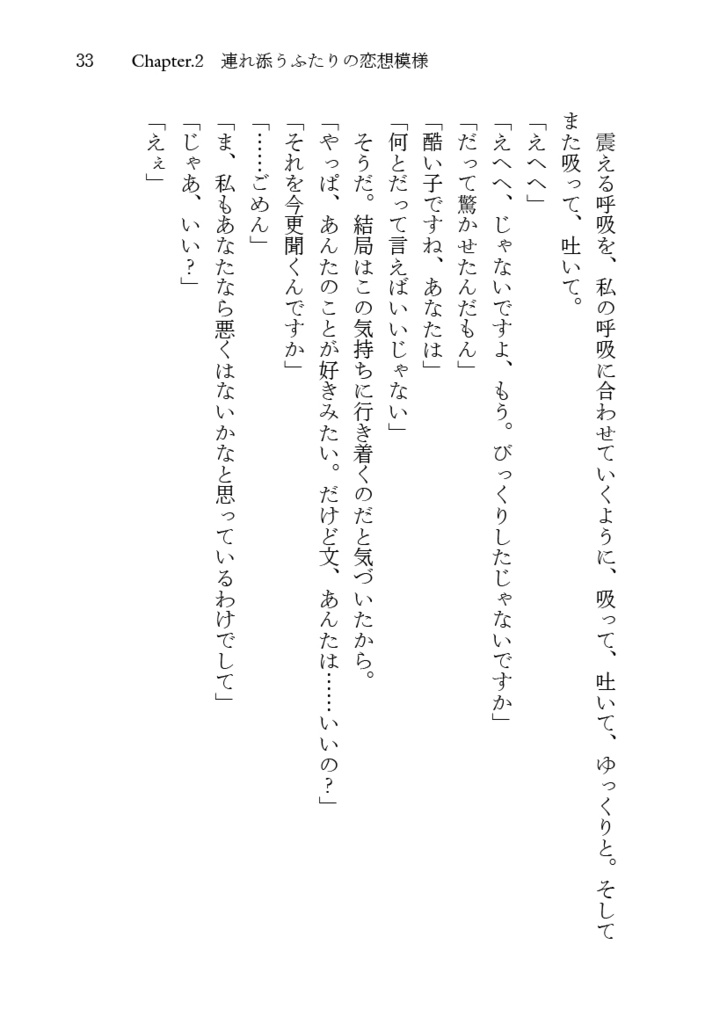 33 Chapter.2 連れ添うふたりの恋想模様
震える呼吸を、私の呼吸に合わせていくように、吸って、吐いて、ゆっくりと。そして
また吸って、吐いて。
「えへへ」
「えへへ、じゃないですよ、もう。びっくりしたじゃないですか」
「だって驚かせたんだもん」
「酷い子ですね、あなたは」
「何とだって言えばいいじゃない」
そうだ。結局はこの気持ちに行き着くのだと気づいたから。
「やっぱ、あんたのことが好きみたい。だけど文、あんたは……いいの?」
「それを今更聞くんですか」
「……ごめん」
「ま、私もあなたなら悪くはないかなと思っているわけでして」
「じゃあ、いい?」
「えぇ」